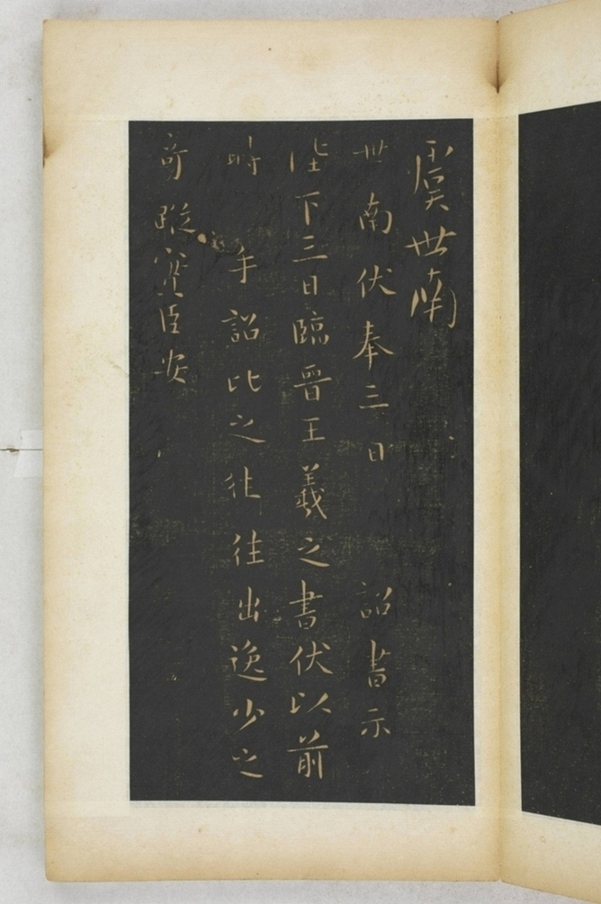 虞世南
世南伏奉三日 詔書示
陛下三日臨晉王羲之書伏以前
時 手詔比之往往出逸少之
奇蹤實臣安